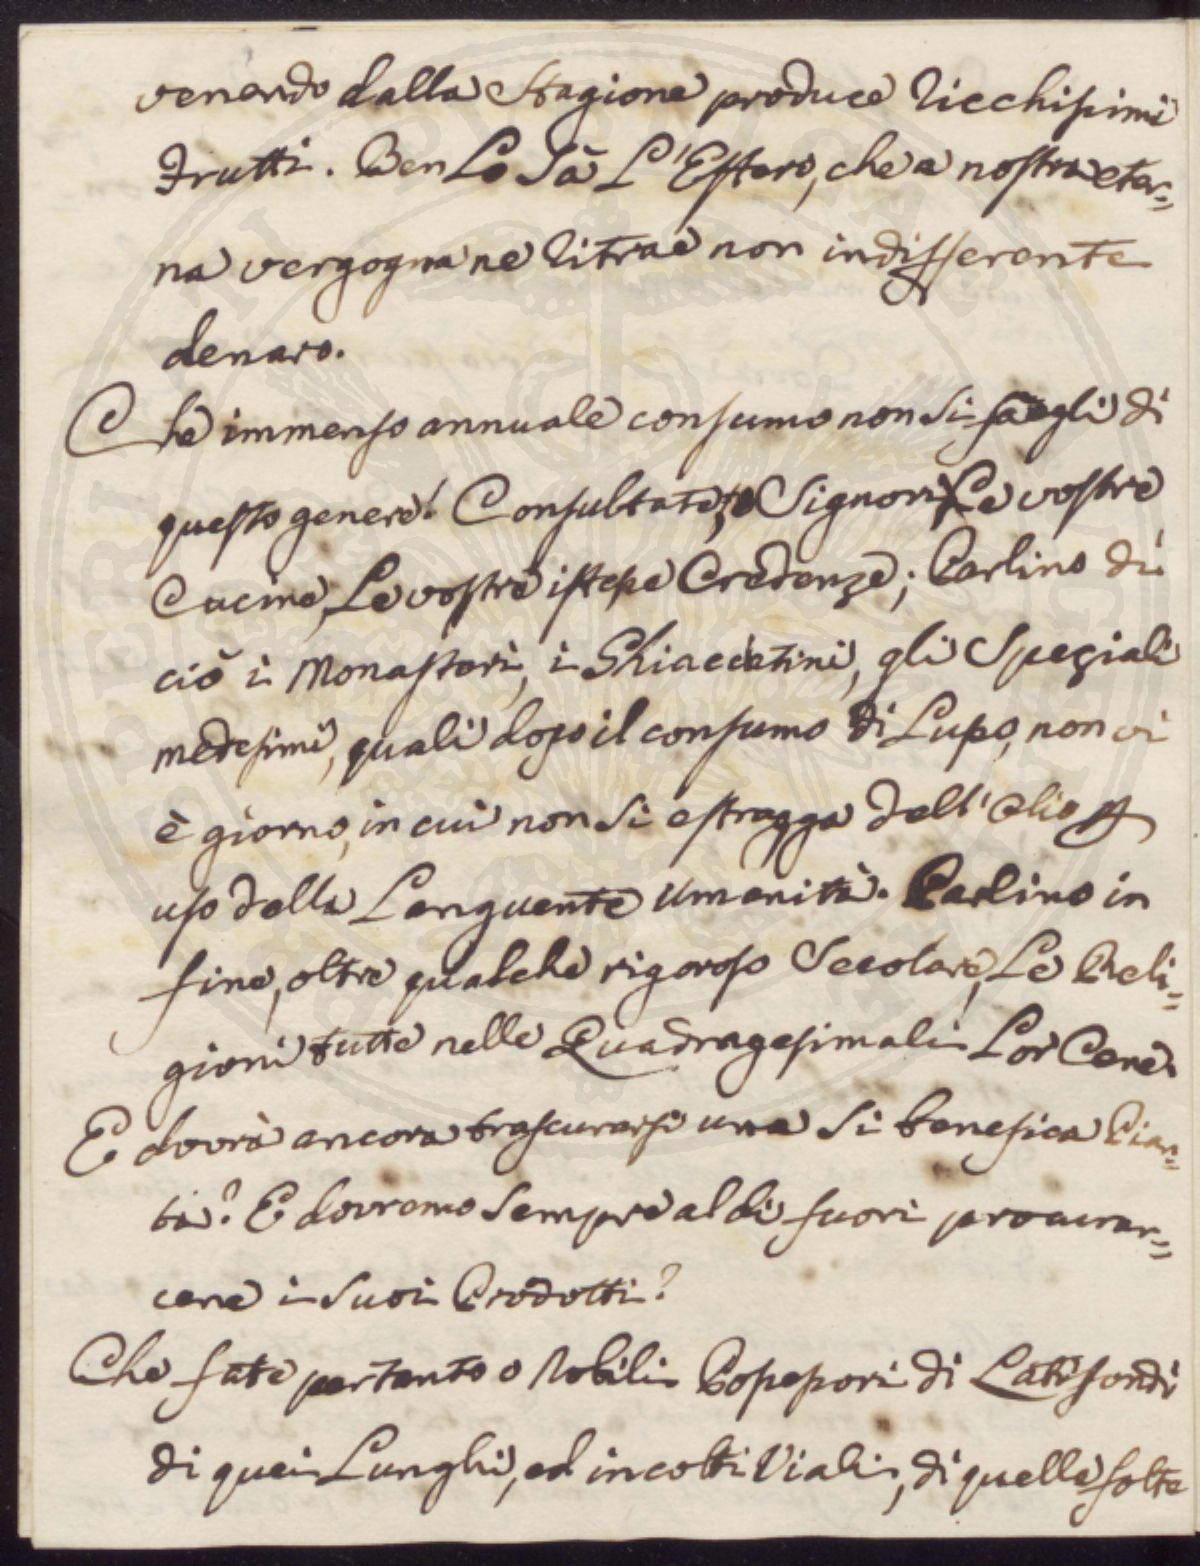 venendo dalla Stagione produce Ricchissimi
Frutti. Ben Lo Sà L'Estero, che a nostra eter=
na vergogna ne Ritrae non indifferente
denaro.
Che immenso annuale consumo non si fa egli di
questo genere! Consultate, Signori, Le vostre
Cucine, Le vostre istesse Credenze; Parlino di
ciò i Monasteri, i Ghiacciatini, gli Speziali
medesimi, quali dopo il consumo di Lupo, non vi
è giorno, in cui non si estragga dell'olio p
uso della Languente Umanità. Parlino in
fine, oltre qualche rigoroso Secolare, Le Reli=
gioni tutte nelle Quadragesimali Lor Cene.
E dovrà ancora trascurarsi una si benefica Pian=
ta? E dovremo sempre al di fuori procurar=
cene i suoi Prodotti?
Che fate pertanto o Nobili Possessori di Latifondi
di quei Lunghi, ed incolti Viali, di quelle folte